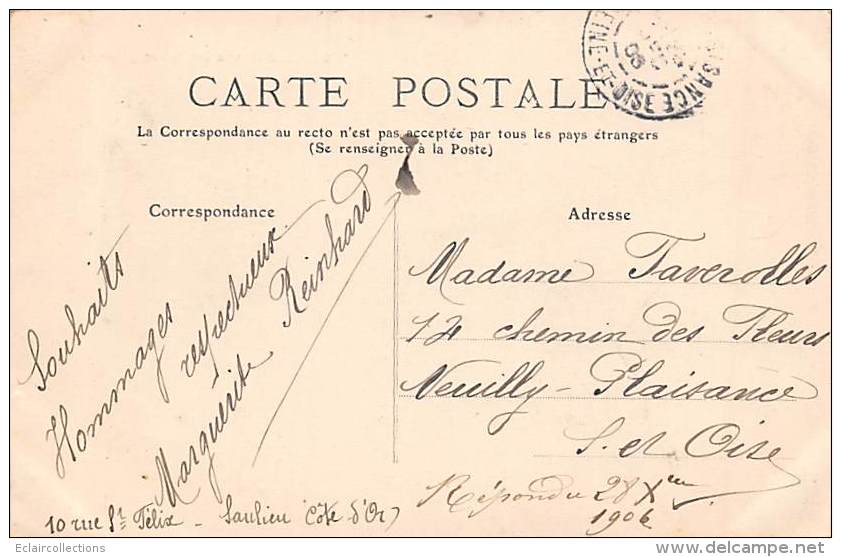 CARTE POSTALE
La Correspondance au recto n'est pas acceptée par tous les pays étrangers
(Se renseigner à la Poste)
Correspondance
Souhaits
Hommages respectueux
Marguerite Reinhard
10 rue St Félix - Saulieu (Côte d'Or)
Adresse
Madame Taverolles
14 chemin des Fleurs
Neuilly-Plaisance
S. et Oise
Répondu 28 Xbre
1906
ISANCE
SEINE-ET-OISE
06
Eclaircollections
www.delcampe.net